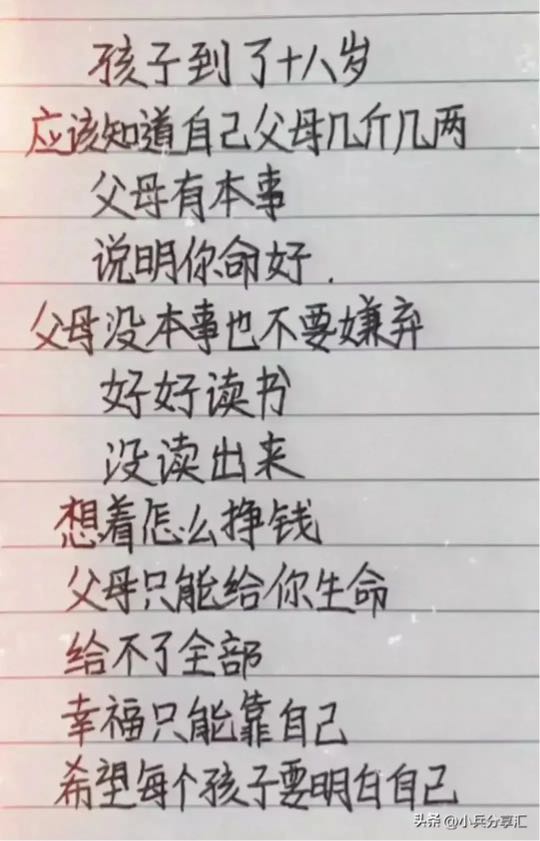 孩子到了十八岁
应该知道自己父母几斤几两
父母有本事
说明你命好.
父母没本事也不要嫌弃
好好读书
没读出来
想着怎么挣钱
父母只能给你生命
给不了全部
幸福只能靠自己
希望每个孩子要明白自己
头条 @小兵分享汇